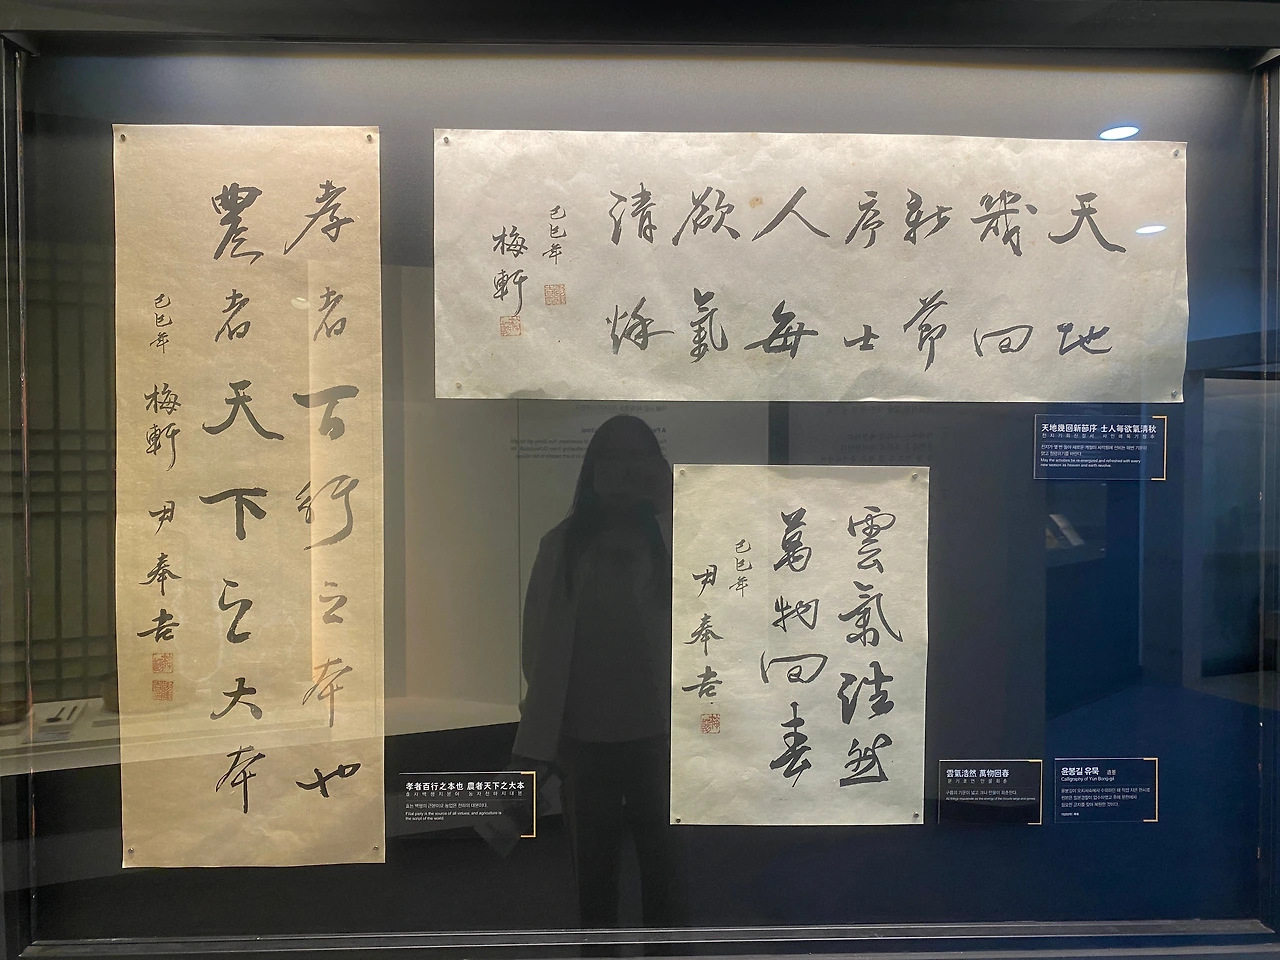 孝者百行之本也
農者天下之大本
己巳年 梅軒 尹奉吉
天地
幾回
新節
序士
人每
欲氣
清秌
己巳年
梅軒
天地幾回新節序 士人每欲氣清秋
천지기회신절서 사인매욕기청추
May the scholars be re-energized and refreshed with every
new season as heaven and earth revolve.
雲氣浩然
萬物回春
己巳年
尹奉吉
孝者百行之本也 農者天下之大本
효자백행지본야 농자천하지대본
효는 백행의 근본이요 농업은 천하의 대본이다.
Filial piety is the source of all virtues, and agriculture is
the script of the world.
雲氣浩然 萬物回春
운기호연 만물회춘
구름의 기운이 넓고 크니 만물이 회춘한다.
All things rejuvenate as the energy of the clouds large and grows.
윤봉길 유묵 遺墨
Calligraphy of Yun Bong-gil